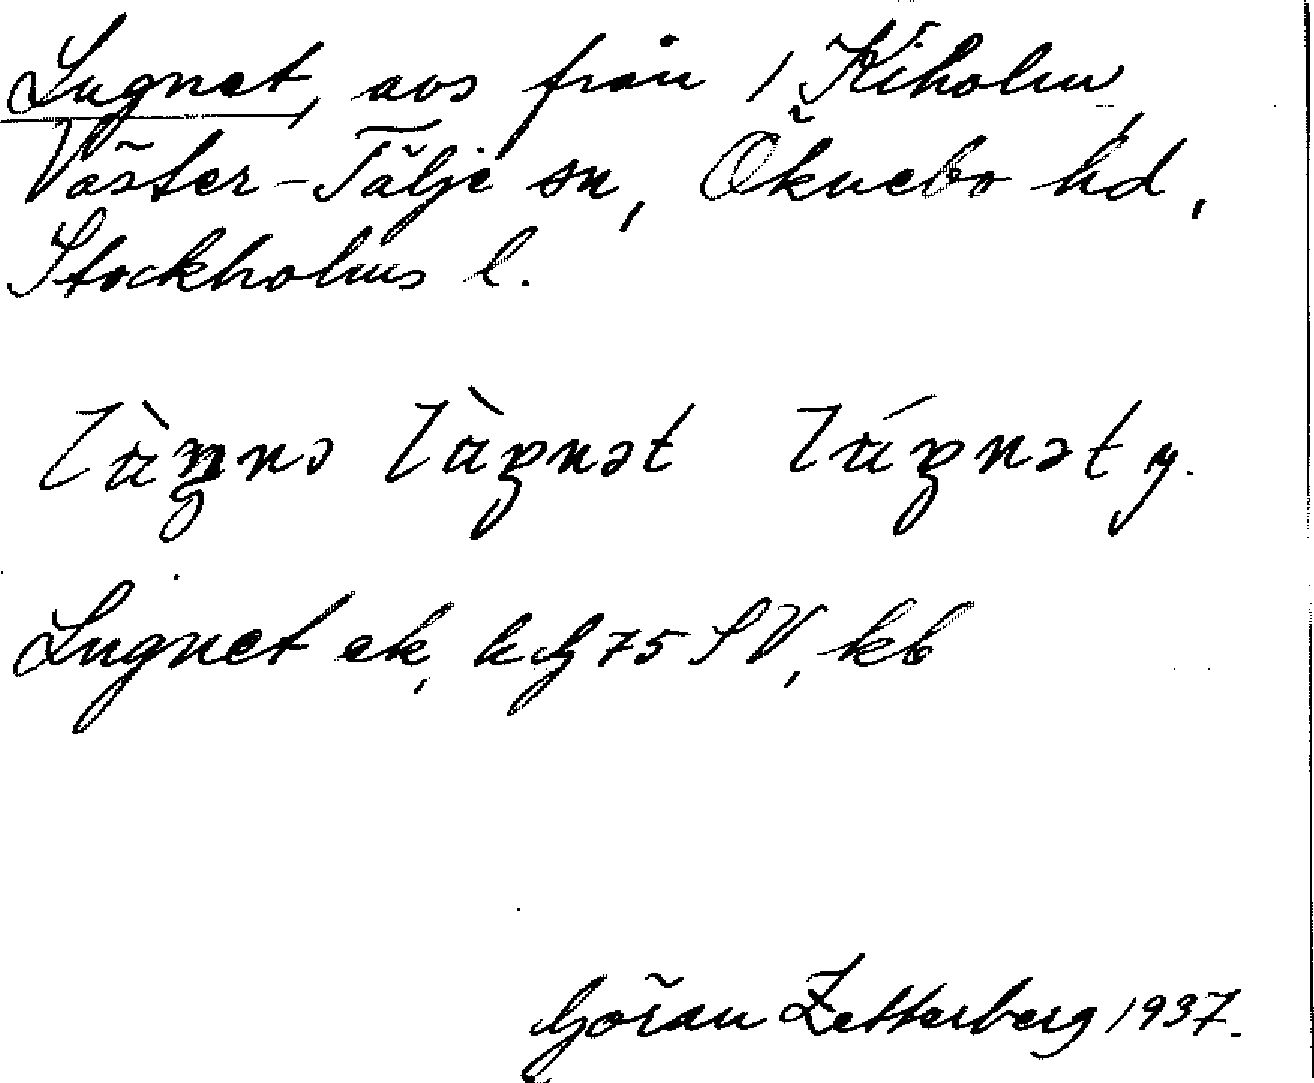 Lugnet, avs från 1 Kiholm,
Väster-Tälje sn, Öknebo hd,
Stockholms l.
lùgnə lùgnət lúgnət y.
Lugnet ek, hcfg 75 SV, kb
Göran Zetterberg 1937.